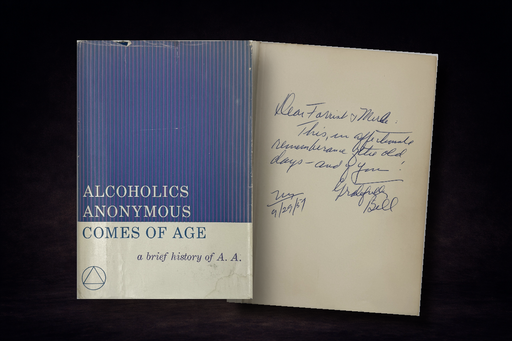 ALCOHOLICS
ANONYMOUS
COMES OF AGE
a brief history of A. A.
Dear Forrist &
This, in affectionate
remembrance of the old
days - and of you!
Gratefully
Bill
NY
9/27/57